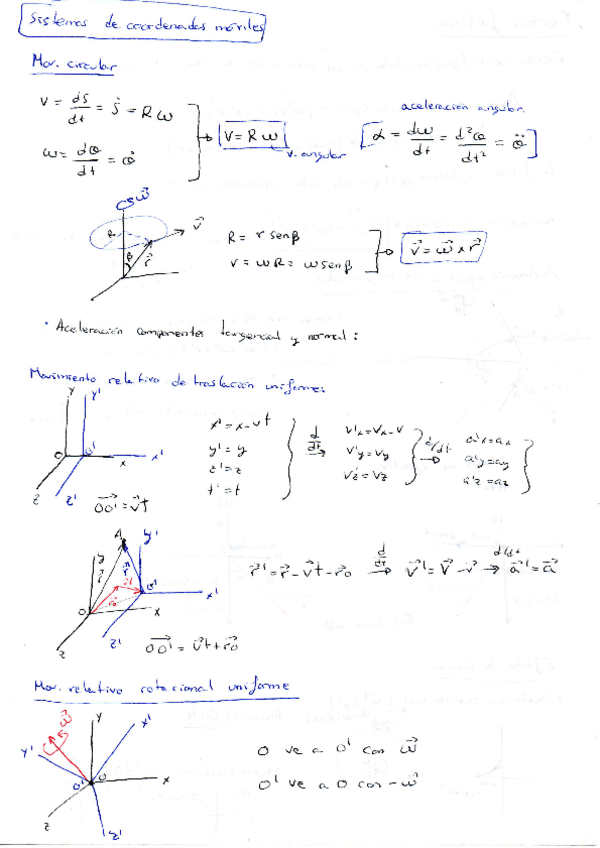 Sistemas de coordenadas móviles
Mov. circular
v = dS/dt = Ṡ = R ω
ω = dθ/dt = θ̇
V = R ω
v. angular
aceleración angular
α = dω/dt = d²θ/dt² = θ̈
ω⃗
R
β
r⃗
v⃗
R = r senβ
v = ωR = ω senβ
v⃗ = ω⃗ x r⃗
· Aceleración componentes tangencial y normal:
Movimiento relativo de traslación uniforme:
Y Y'
O O' x x'
z z'
OO⃗' = v⃗t
x' = x - vt
y' = y
z' = z
t' = t
d/dt
v'x = vx - v
v'y = vy
v'z = vz
d/dt
a'x = ax
a'y = ay
a'z = az
A
y y'
r⃗ r⃗'
O O' x x'
r⃗o
z z'
OO⃗' = v⃗t + r⃗o
r⃗' = r⃗ - v⃗t - r⃗o d/dt → v⃗' = V⃗ - v⃗ d/dt → a⃗' = a⃗
Mov. relativo rotacional uniforme
ω⃗
Y x'
Y'
O' O x
z z'
O ve a O' con ω⃗
O' ve a O con -ω⃗